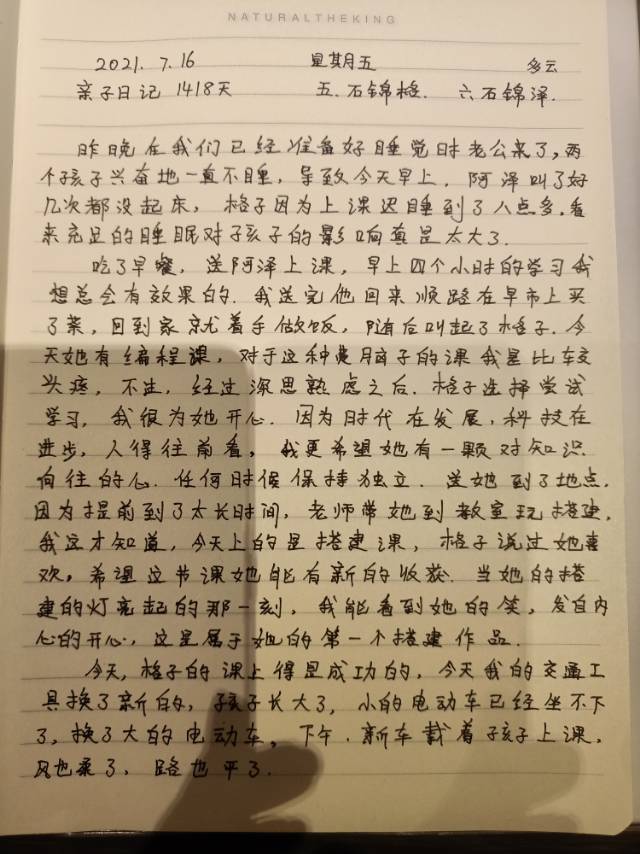 NATURALTHEKING
2021. 7.16 星期五 多云
亲子日记 1418天 五.石锦格. 六石锦泽.
昨晚在我们已经准备好睡觉时老公来了,两
个孩子兴奋地一直不睡,导致今天早上.阿泽叫了好
几次都没起床,格子因为上课迟睡到了八点多.看
来充足的睡眠对子孩子的影响真是太大了.
吃了早餐,送阿泽上课,早上四个小时的学习我
想总会有效果的.我送完他回来顺路在早市上买
了菜,回到家就着手做饭,随后叫起了格子.今
天她有编程课,对于这种费脑子的课我是比较
头疼,不过,经过深思熟虑之后.格子选择尝试
学习,我很为她开心.因为时代在发展,科技在
进步,人得往前看,我更希望她有一颗对知识
向往的心.任何时候保持独立.送她到了地点,
因为提前到了太长时间,老师带她到教室玩搭建,
我这才知道,今天上的是搭建课,格子说过她喜
欢,希望这节课她能有新的收获.当她的搭
建的灯亮起的那一刻,我能看到她的笑,发自内
心的开心,这是属于她的第一个搭建作品.
今天,格子的课上得是成功的,今天我的交通工
具换了新的,孩子长大了,小的电动车已经坐不下
了,换了大的电动车。下午.新车载着子孩子上课,
风也柔了,路也平了.